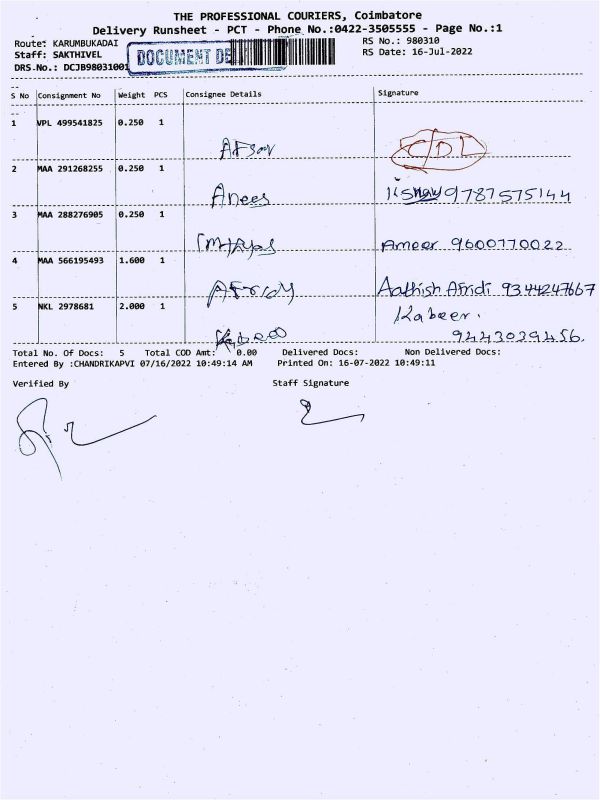 THE PROFESSIONAL COURIERS, Coimbatore
Delivery Runsheet - PCT - Phone No.:0422-3505555 - Page No.:1
Route: KARUMBUKADAI
RS No.: 980310
Staff: SAKTHIVEL
DOCUMENT DE
RS Date: 16-Jul-2022
DRS No.: DCJB98031001
S No Consignment No Weight PCS Consignee Details Signature
1 VPL 499541825 0.250 1
Afsar CDL
2 MAA 291268255 0.250 1
Anees 9787575144
3 MAA 288276905 0.250 1
Ameer 9600770022
4 MAA 566195493 1.600 1
Afridy Aathish Afridi 9344247667
5 NKL 2978681 2.000 1
Kabeer.
Kabeer 9443039456.
Total No. Of Docs: 5 Total COD Amt: 0.00 Delivered Docs: Non Delivered Docs:
Entered By :CHANDRIKAPVI 07/16/2022 10:49:14 AM Printed On: 16-07-2022 10:49:11
Verified By Staff Signature